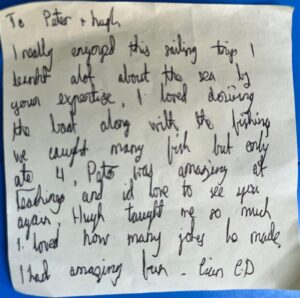 To Peter + Hugh
I really enjoyed this sailing trip I
learnt alot about the sea by
your expertise, I loved driving
the boat along with the fishing
we caught many fish but only
ate 4, Peter was amazing at
teachings and id love to see you
again. Hugh taught me so much
I loved how many jokes he made,
I had amazing fun - C.D